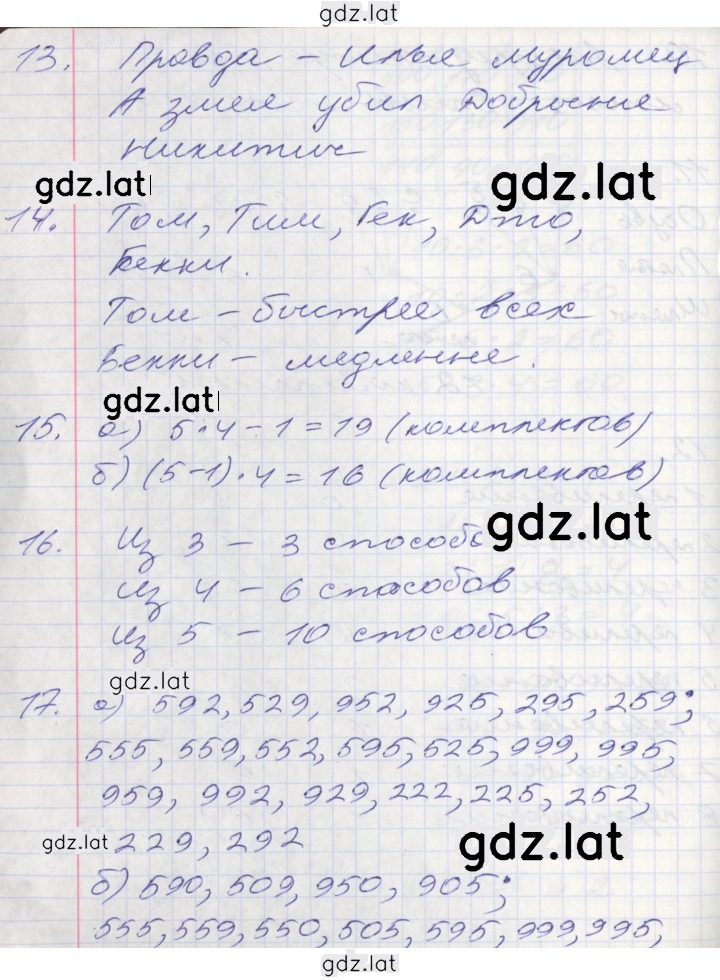 gdz.lat
13. Правда – Илья Муромец
А змея убил Добрыня
Никитич
gdz.lat gdz.lat
14. Том, Тим, Гек, Джо,
Бекки.
Том – быстрее всех
Бекки – медленнее.
gdz.lat
15. а) 5·4-1=19 (комплектов)
б) (5-1)·4=16 (комплектов)
gdz.lat
16. Из 3 – 3 способа
Из 4 – 6 способов
Из 5 – 10 способов
gdz.lat
17. а) 592, 529, 952, 925, 295, 259;
555, 559, 552, 595, 525, 999, 995,
959, 992, 929, 222, 225, 252,
gdz.lat 229, 292 gdz.lat
б) 590, 509, 950, 905;
555, 559, 550, 505, 595, 999, 995,
gdz.lat